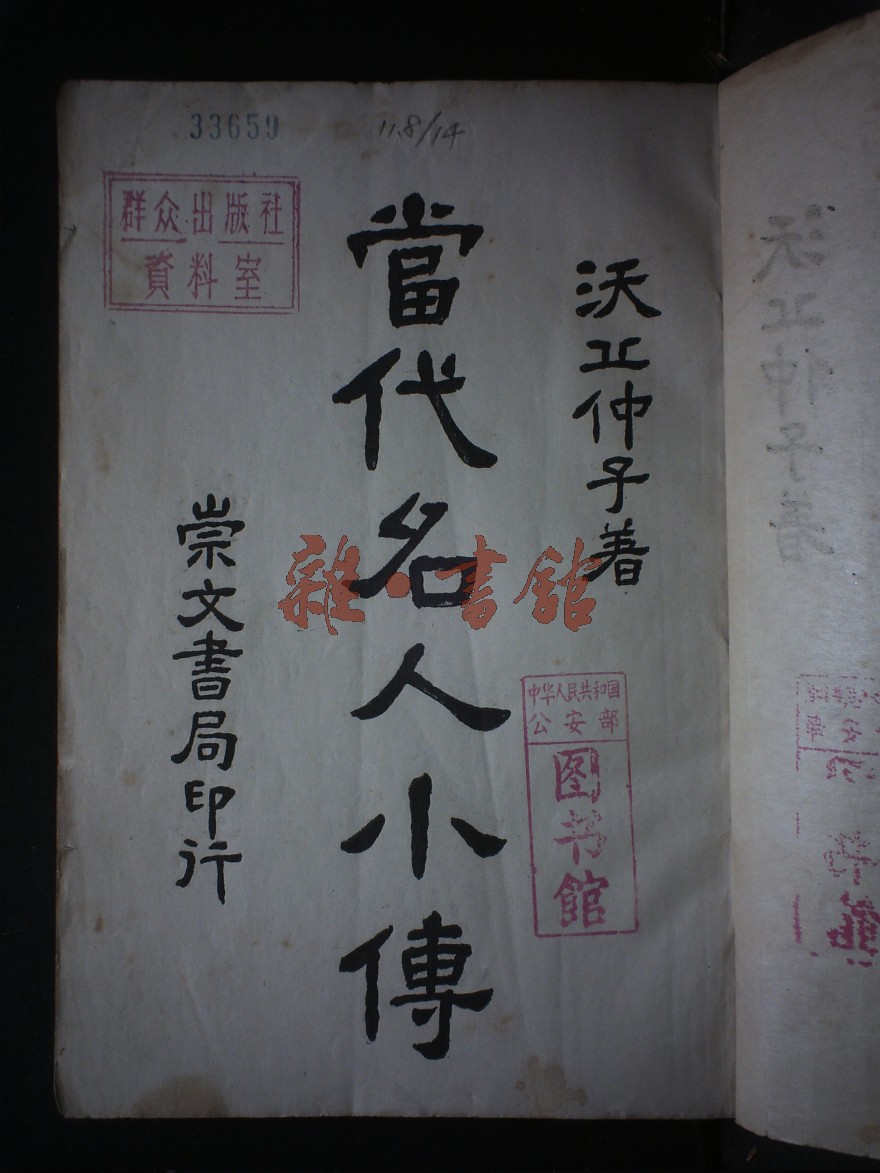 33659
11.8/14
群众出版社
資料室
沃丘仲子著
當代名人小傳
崇文書局印行
雜·書館
中华人民共和国
公安部
图书馆